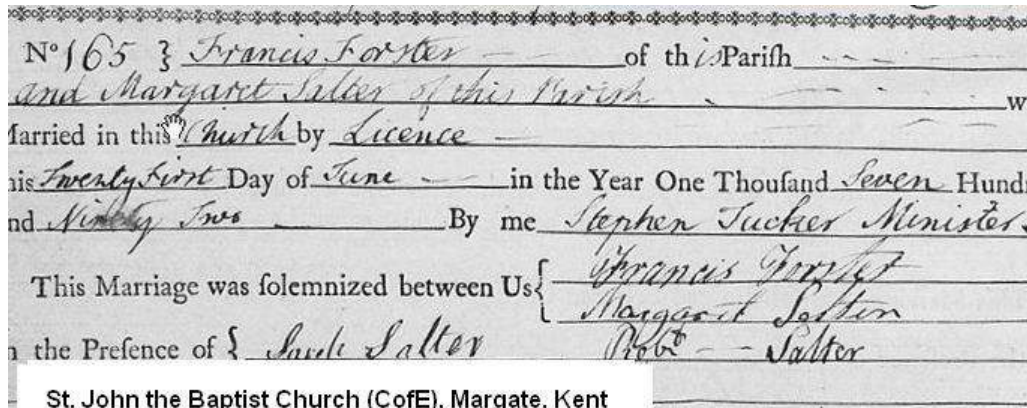 No 165 } Francis Forster of this Pariſh
and Margaret Salter of this Parish w
Married in this Church by Licence
his Twenty First Day of June in the Year One Thouſand Seven Hundr
nd Ninety Two By me Stephen Tucker Minister
This Marriage was ſolemnized between Us { Francis Forster
Margaret
n the Preſence of { Sarah Salter Robt Salter
St. John the Baptist Church (CofE), Margate, Kent